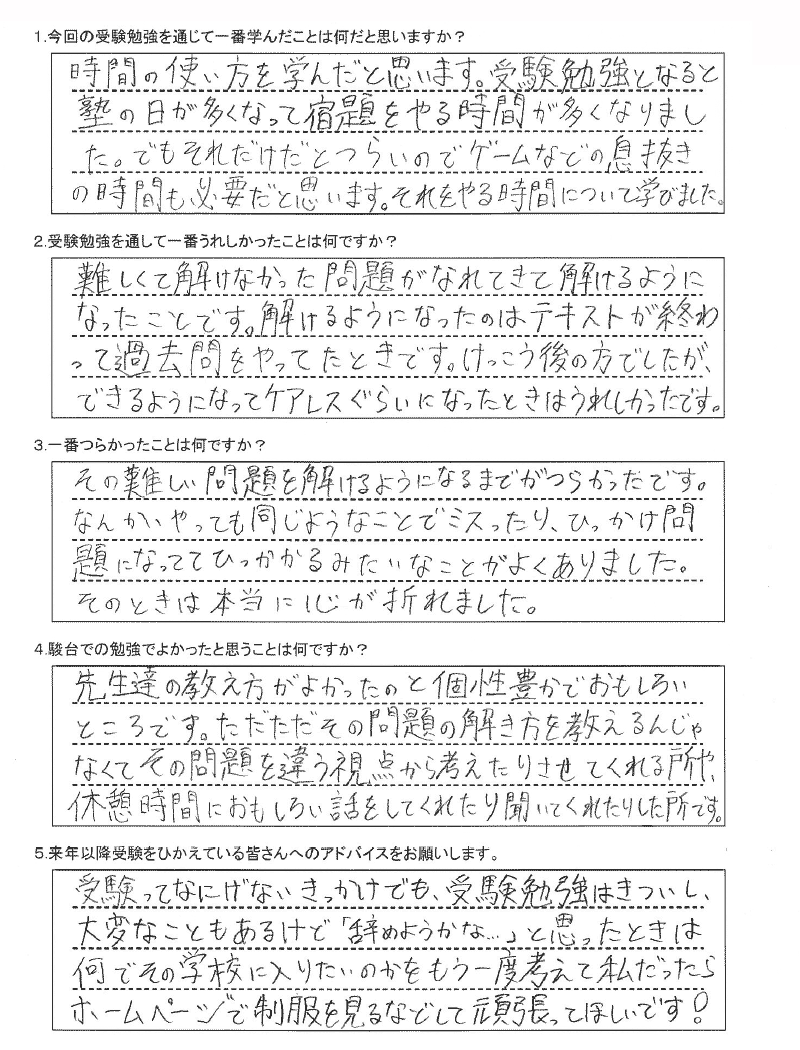 1.今回の受験勉強を通じて一番学んだことは何だと思いますか？
時間の使い方を学んだと思います。受験勉強となると
塾の日が多くなって宿題をやる時間が多くなりまし
た。でもそれだけだとつらいのでゲームなどの息抜き
の時間も必要だと思います。それをやる時間について学びました。
2.受験勉強を通して一番うれしかったことは何ですか？
難しくて解けなかった問題がなれてきて解けるように
なったことです。解けるようになったのはテキストが終わ
って過去問をやってたときです。けっこう後の方でしたが、
できるようになってケアレスぐらいになったときはうれしかったです。
3.一番つらかったことは何ですか？
その難しい問題を解けるようになるまでがつらかったです。
なんかいやっても同じようなことでミスったり、ひっかけ問
題になっててひっかかるみたいなことがよくありました。
そのときは本当に心が折れました。
4.駿台での勉強でよかったと思うことは何ですか？
先生達の教え方がよかったのと個性豊かでおもしろい
ところです。ただただその問題の解き方を教えるんじゃ
なくてその問題を違う視点から考えたりさせてくれる所や、
休憩時間におもしろい話をしてくれたり聞いてくれたりした所です。
5.来年以降受験をひかえている皆さんへのアドバイスをお願いします。
受験ってなにげないきっかけでも、受験勉強はきついし、
大変なこともあるけど「辞めようかな…」と思ったときは
何でその学校に入りたいのかをもう一度考えて私だったら
ホームページで制服を見るなどして頑張ってほしいです！